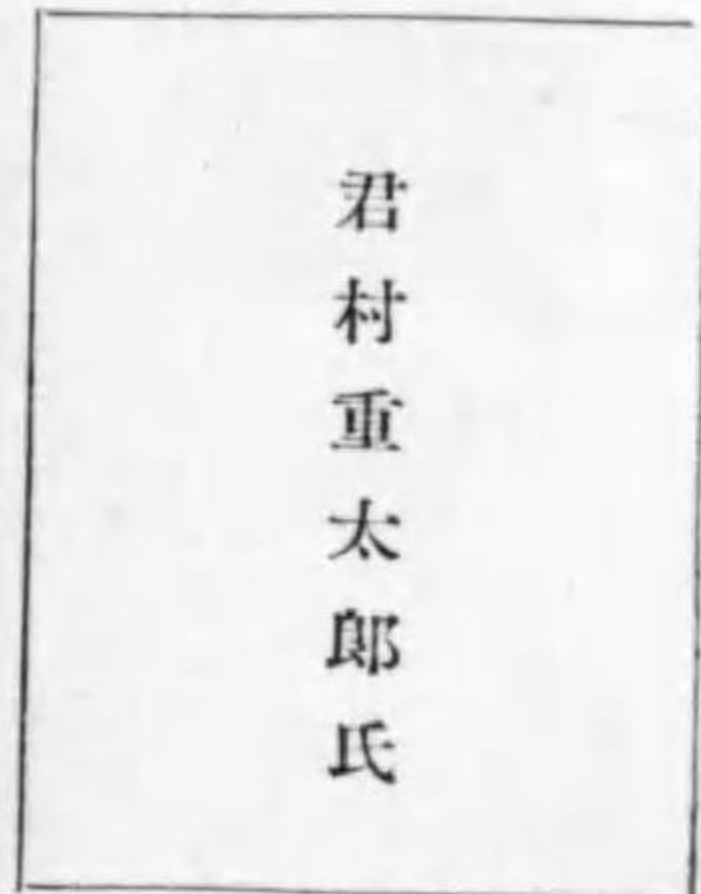 君村重太郎氏